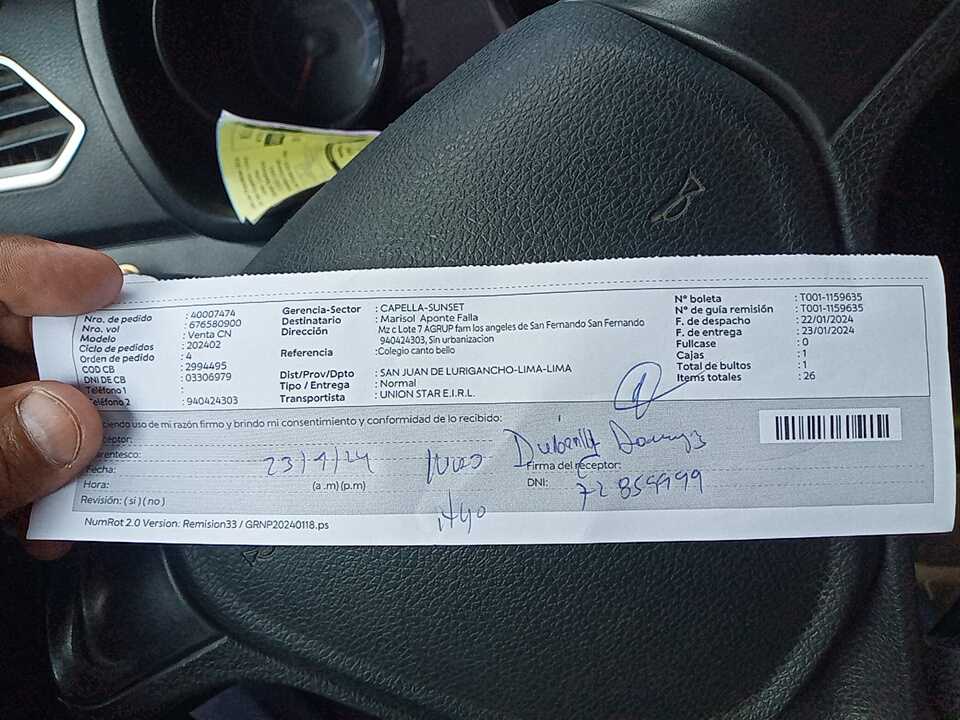 Nro. de pedido : 40007474
Nro. vol : 676580900
Modelo : Venta CN
Ciclo de pedidos : 202402
Orden de pedido : 4
COD CB : 2994495
DNI DE CB : 03306979
Teléfono 1
Teléfono 2 : 940424303
Gerencia-Sector : CAPELLA-SUNSET
Destinatario : Marisol Aponte Falla
Dirección : Mz c Lote 7 AGRUP fam los angeles de San Fernando San Fernando
940424303, Sin urbanizacion
Referencia : Colegio canto bello
Dist/Prov/Dpto : SAN JUAN DE LURIGANCHO-LIMA-LIMA
Tipo / Entrega : Normal
Transportista : UNION STAR E.I.R.L.
N° boleta : T001-1159635
N° de guía remisión : T001-1159635
F. de despacho : 22/01/2024
F. de entrega : 23/01/2024
Fullcase : 0
Cajas : 1
Total de bultos : 1
Items totales : 26
uso de mi razón firmo y brindo mi consentimiento y conformidad de lo recibido:
Fecha: 23/1/24
Hora: (a.m)(p.m)
Revisión: ( si ) ( no )
Firma del receptor:
DNI: 72859999
NumRot 2.0 Version: Remision33 / GRNP20240118.ps